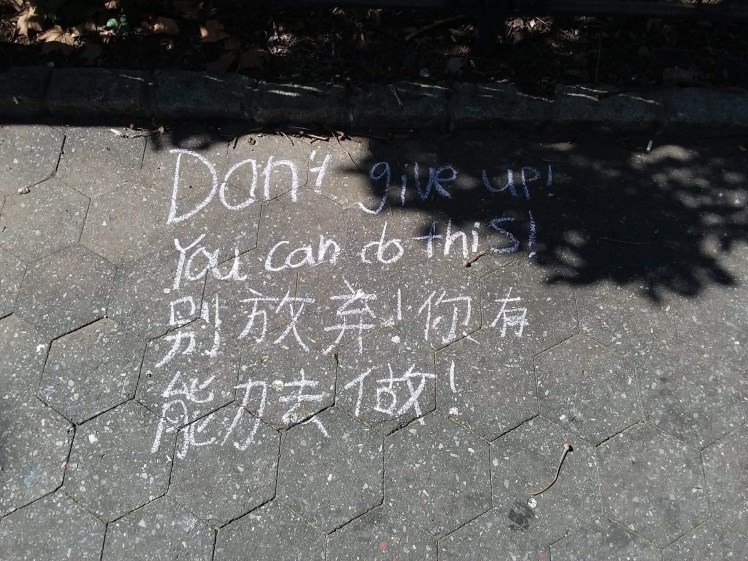 Don't give up!
You can do this!
别放弃!你有
能力去做!